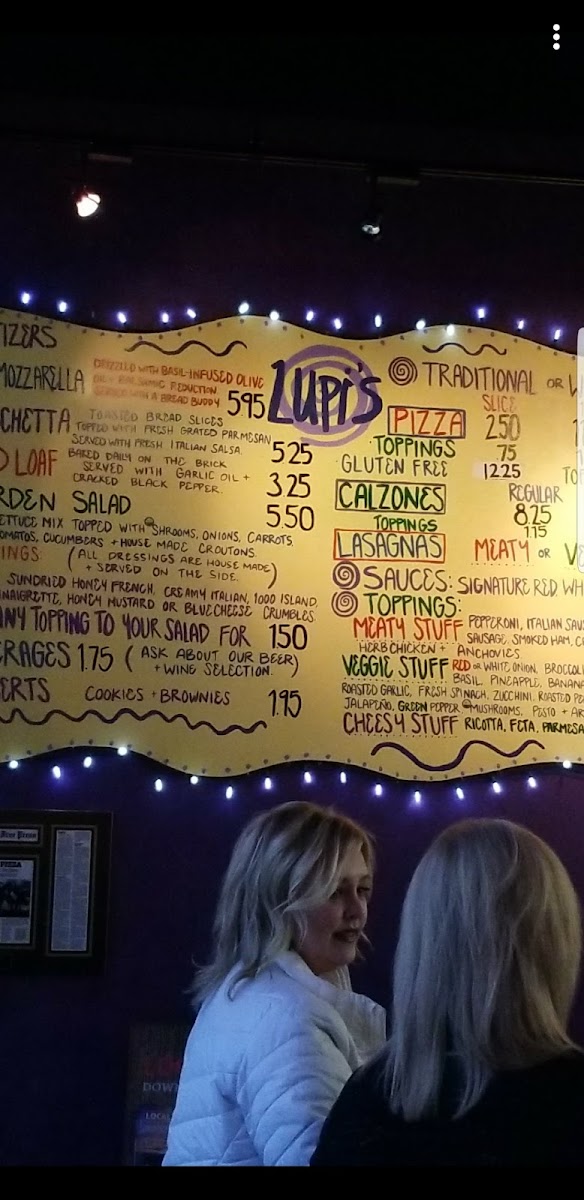 IZERS
MOZZARELLA
DRIZZLED WITH BASIL-INFUSED OLIVE
OIL + BALSAMIC REDUCTION.
SERVED WITH A BREAD BUDDY
5.95
CHETTA
TOASTED BREAD SLICES
TOPPED WITH FRESH GRATED PARMESAN
SERVED WITH FRESH ITALIAN SALSA.
5.25
D LOAF
BAKED DAILY ON THE BRICK
SERVED WITH GARLIC OIL +
CRACKED BLACK PEPPER.
3.25
RDEN SALAD
5.50
ETTUCE MIX TOPPED WITH SHROOMS, ONIONS, CARROTS,
OMATOES, CUCUMBERS + HOUSE MADE CROUTONS.
INGS (ALL DRESSINGS ARE HOUSE MADE
+ SERVED ON THE SIDE.)
SUNDRIED HONEY FRENCH, CREAMY ITALIAN, 1000 ISLAND,
INAIGRETTE, HONEY MUSTARD OR BLUE CHEESE CRUMBLES
ANY TOPPING TO YOUR SALAD FOR 1.50
ERAGES 1.75 (ASK ABOUT OUR BEER
+ WINE SELECTION.)
ERTS COOKIES + BROWNIES 1.95
LUPi's
TRADITIONAL OR W
SLICE
PIZZA 2.50
TOPPINGS .75
GLUTEN FREE 12.25
CALZONES REGULAR
8.25
TOPPINGS 1.15
LASAGNAS MEATY OR VE
SAUCES: SIGNATURE RED, WH
TOPPINGS:
MEATY STUFF PEPPERONI, ITALIAN SAUS
SAUSAGE, SMOKED HAM,
HERB CHICKEN + ANCHOVIES
VEGGIE STUFF RED OR WHITE ONION, BROCCOLI
BASIL, PINEAPPLE, BANANA
ROASTED GARLIC, FRESH SPINACH, ZUCCHINI, ROASTED PE
JALAPEÑO, GREEN PEPPER, MUSHROOMS, PESTO + AR
CHEESY STUFF RICOTTA, FETA, PARMESA
Free Press
PIZZA
DOW
LOCA